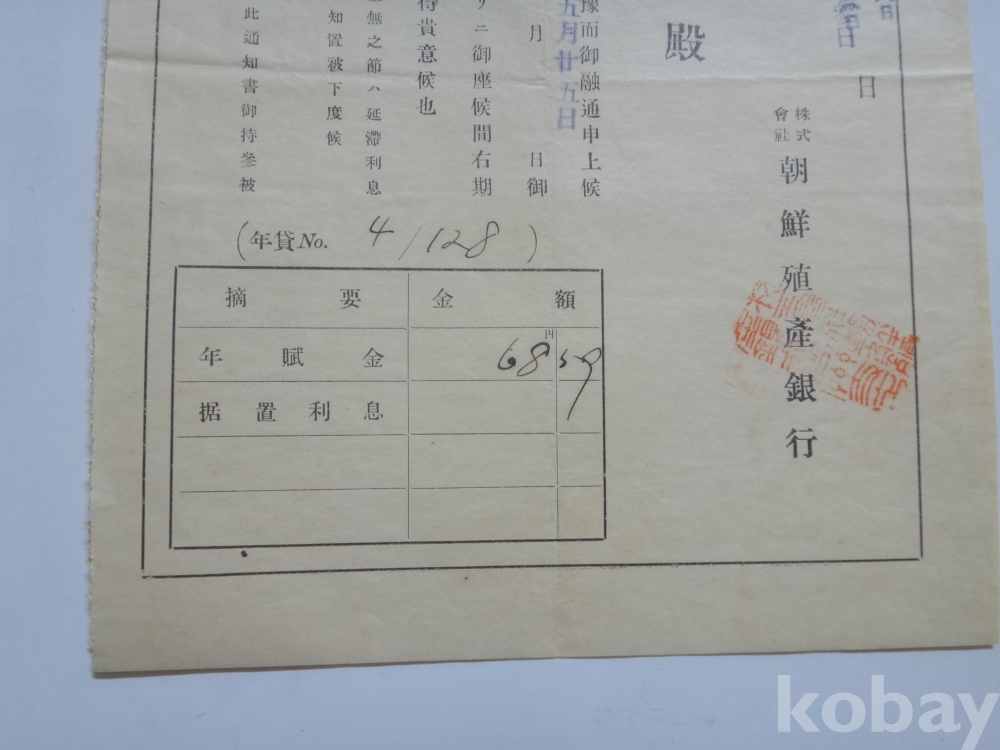 日
株式會社朝鮮殖産銀行
殿
豫而御融通申上候
五月廿五日
月 日御
リニ御座候間右期
待貴意候也
無之節ハ延滯利息
知置被下度候
此通知書御持參被
(年貸No. 4/128)
摘要 金額
年賦金 68円59
据置利息
kobay